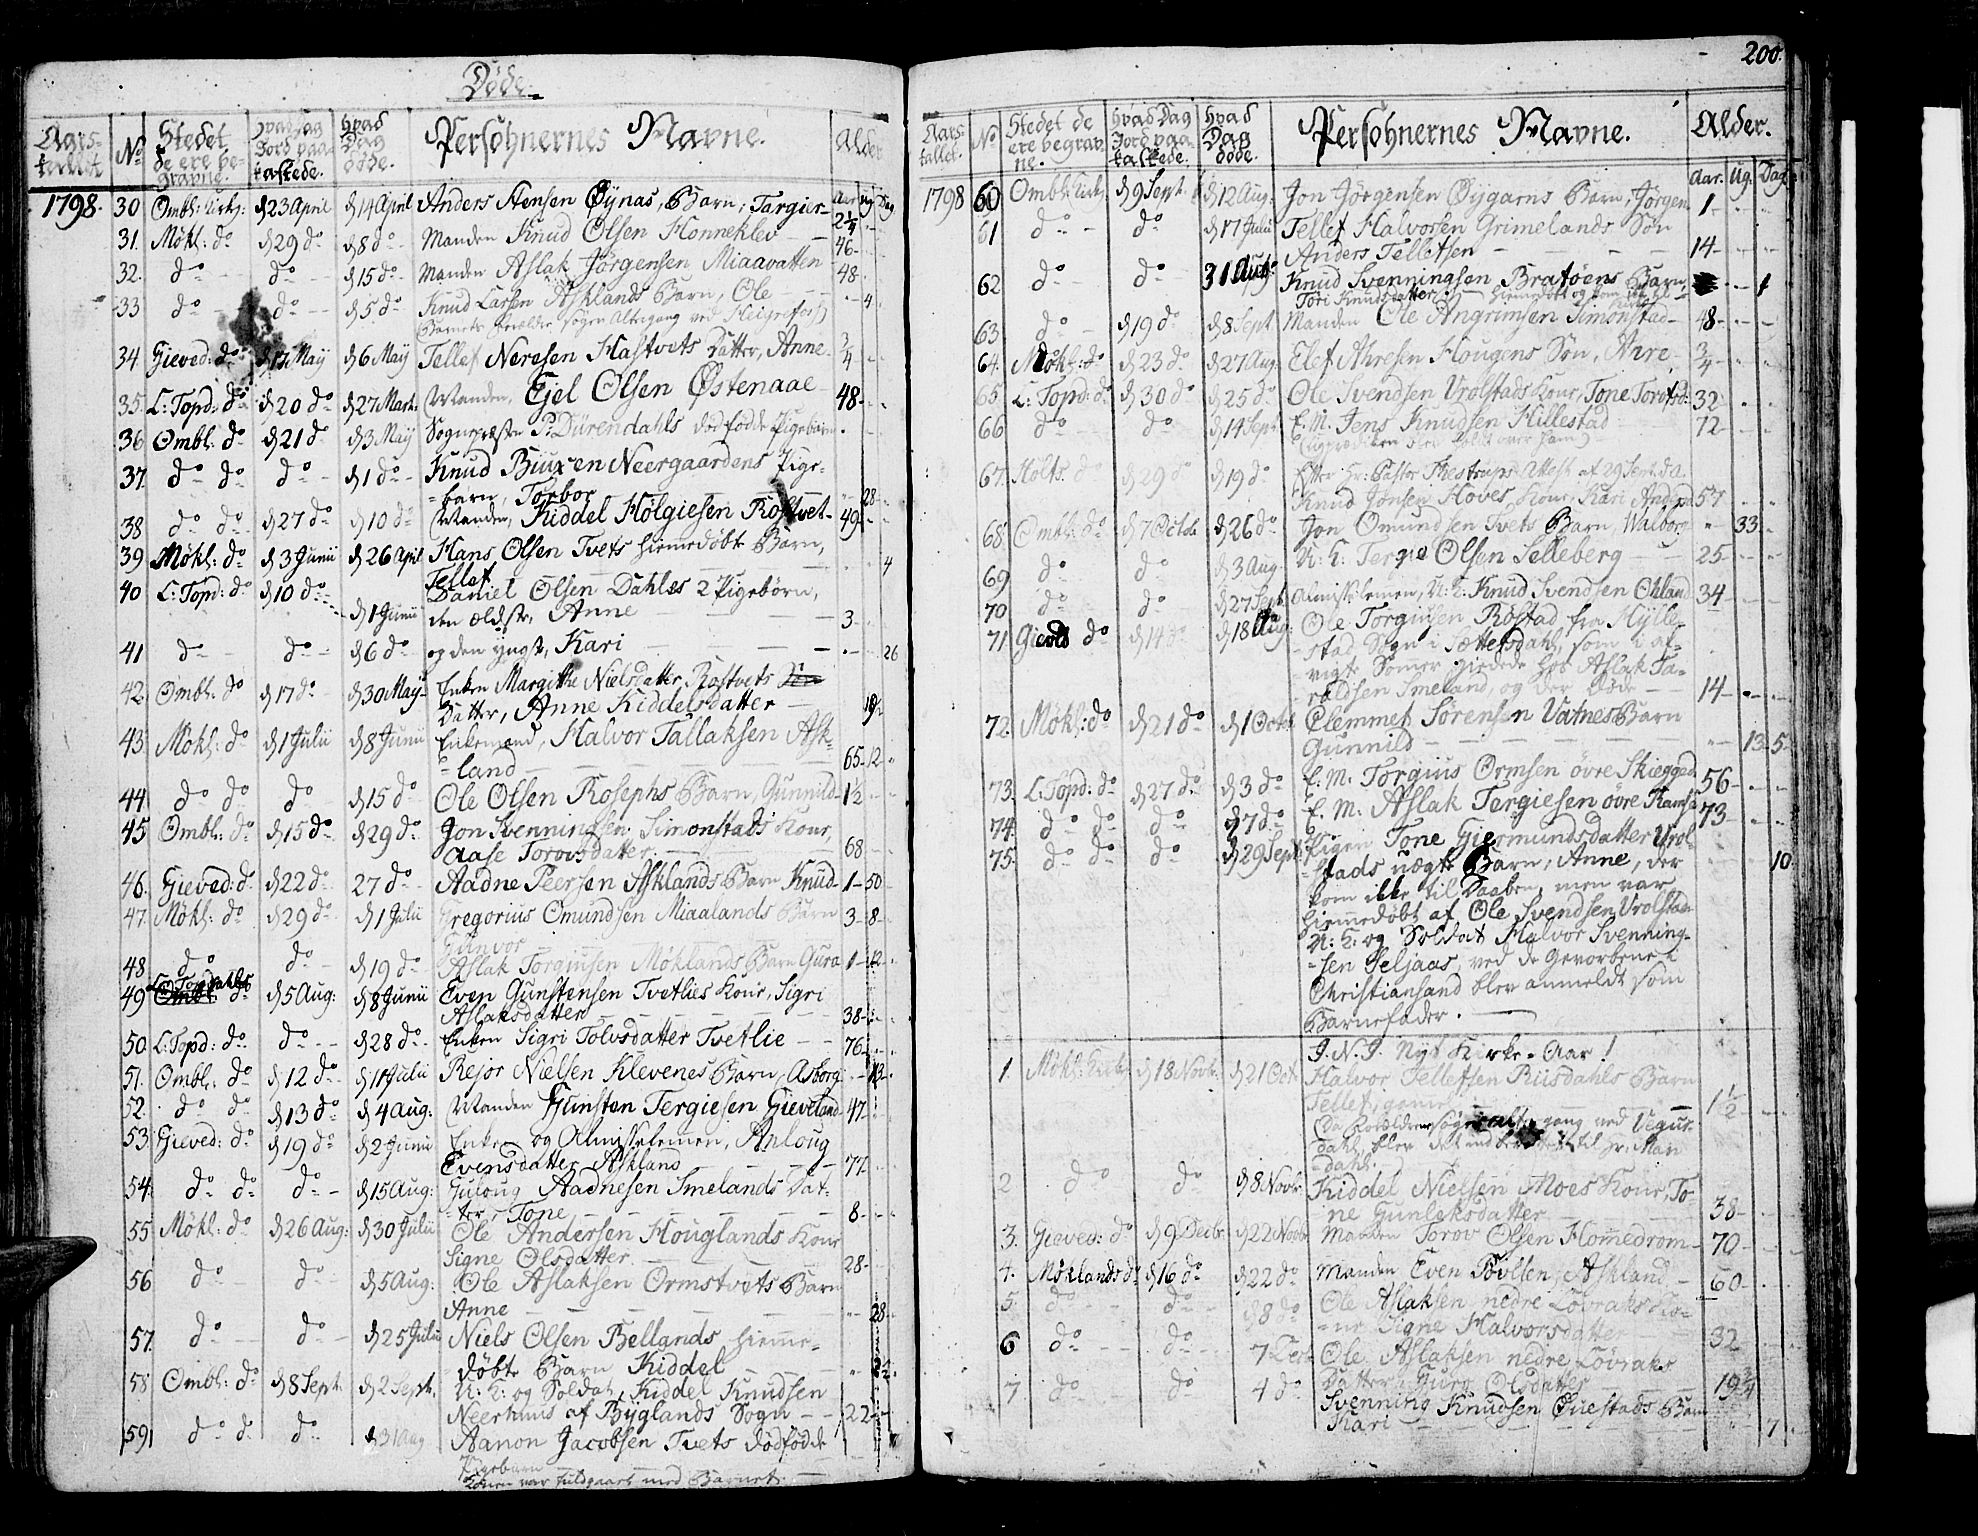 Døde.
Aars-tallet No Stedet de ere be-gravne. Hvad Dag Jord paa-kastede. Hvad Dag døde. Persohnernes Navne. Alder
Aar Ug Dag
1798. 30 Ombl: Kirke: d 23 April d 14 April Anders Stensen Øynas, Barn, Targier- 2 1/4
31. Møkl: do d 29 do d 8 do Manden Knud Olsen Honneklev 46
32. do do d 15 do Manden Aslak Jørgensen Miaavatten 48
33 do do d 5 do Knud Larsen Asklands Barn, Ole 4
34. Gieved: do d 17 May d 6 May Tellef Neresen Hastvets Datter, Anne 3/4
35. L: Topd: do d 20 do d 27 Mart: Manden, Ejel Olsen Østenaae 48
36 Ombl: do d 21 do d 3 May Sognepræsten P: Dürendahls dødfødde Pigebarn
37. do do do d 1 do Knud Biuxen Neergaardens Pige-
barn, Torbor 28
38 do do d 27 do d 10 do Manden, Kiddel Hølgiesen Rostvet 49
39 Møkl: do d 3 Junii d 26 April Hans Olsen Tvets hiemedøbt Barn,
Tellef 4
40 L: Topd: do d 10 do Daniel Olsen Dahles 2 Pigebørn,
d 1 Junii den ældste, Anne 3
41 do do d 6 do og den yngst, Kari 26
42. Ombl: do d 17 do d 30 May Enken Margithe Nielsdatter Rostvets Søn
Datter, Anne Kiddelsdatter 19
43. Møkl: do d 1 Julii d 8 Junii Enkemand, Halvor Tallaksen Ask-
land 65 12
44 do do do d 15 do Ole Olsen Rosephs Barn, Gunnild 1 1/2
45 Ombl: do d 15 do d 29 do Jon Svenningsen Simonstads Kone,
Aase Torovsdatter 68
46. Gieved: do d 22 do 27 do Aadne Peersen Asklands Barn Knud 1 50
47. Møkl: do d 29 do d 1 Julii Gregorius Omundsen Miaalands Barn 3 8
Gunvor
48 do do d 19 do Aslak Torgiusen Møklands Barn Gura 1 12
49 L: Topdahls Ombl: do d 5 Aug: d 8 Junii Even Gunstensen Tvetlies Kone, Sigri
Aslaksdatter 38
50 L: Topd: do do d 28 do Enken Sigri Tolvsdatter Tvetlie 76
51. Ombl: do d 12 do d 11 Julii Rejor Nielsen Klevenes Barn, Asborg 12
52. do do d 13 do d 4 Aug: Manden Gunsten Tergiesen Gieveland 47
53. Gieved: do d 19 do d 2 Junii Enke og Almisselemen, Anloug
Evensdatter Askland 77
54. do do do d 15 Aug: Juloug Aadnesen Smelands Dat-
ter, Tone 8
55 Møkl: do d 26 Aug: d 30 Julii Ole Andersen Houglands Kone
Signe Olsdatter 28
56 do do d 5 Aug: Ole Aslaksen Ormstvets Barn
Anne 28
57. do do d 25 Julii Niels Olsen Bellands hieme-
døbte Barn Kiddel
58 Ombl: do d 8 Sept. d 2 Sept. U: K: og Soldat, Kiddel Knudsen
Neerhuus af Byglands Sogn 22
59 do do do d 31 Aug Aanon Jacobsen Tvets dødfødde
Pigebarn
Konen var fuldgaaet med Barnet.
200.
Aars-tallet. No Stedet de ere begrav-ne. Hvad Dag Jord paa-kastede. Hvad Dag døde. Persohnernes Navne. Alder.
Aar. Ug. Dag
1798 60 Ombl: Kirke d 9 Sept. d 12 Aug: Jon Jørgensen Øygarns Barn, Jørgen 1
61 do do d 17 Julii Tellef Halvorsen Grimelands Søn
Anders Tellefsen 14
62 do do 31 Aug: Knud Svenningsen Bratøens Barn, 1
Tori Knudsdatter
63 do d 19 do d 8 Sept Manden Ole Angrimsen Simonstad 48
64. Møkl: do d 23 do d 27 Aug: Elef Ahresen Hougens Søn, Aire 3/4
65 L: Topd: do d 30 do d 25 do Ole Svendsen Vrolstads Kone, Tone Torofsd: 32
66 do do d 14 Sept E. M. Jens Knudsen Hillestad 72
67. Holts. do d 29 do d 19 do Efter Hr: Pastor Thestrups Attest af 29 Sept. d. A.
Knud Jonsen Hoves Kone, Kari Andersd 57
68. Ombl: do d 7 Octob d 26 do Jon Omundsen Tvets Barn, Walborg 33
69 do do d 3 Aug U: K: Tergie Olsen Selleberg 25
70 do do d 27 Sept Almisselemen, U: K: Knud Svendsen Ohland 34
71 Gieved do d 14 do d 18 Aug: Ole Torgiusen Rostad fra Hylle-
stad Sogn i Sættersdahl, som i af-
vigte Somer giedede hos Aslak Ta-
raldsen Smeland, og der døde 14
72. Møkl: do d 21 do d 1 Octob Clemmet Sørensen Vatnes Barn
Gunnild 13 5
73. L: Topd: do d 27 do d 3 do E. M. Torgius Ormsen øvre Skiegged 56
74. do do do d 7 do E. M. Aslak Tergiesen øvre Ramse 73
75. do do do d 29 Sept. Pigen Tone Giermundsdatter Vrol-
stads uægte Barn, Anne, der 10
kom ikke til Daaben, men var
hiemedøbt af Ole Svendsen Vrolstad
U: K: og Soldat Halvor Svenning-
sen Seljaas, ved de Gevorbene i
Christiansand blev anmeldt som
Barnefader.
I. N. J. Nyt Kirke-Aar!
1. Møkl: Kirke d 18 Novb. d 21 Oct Halvor Tellefsen Riisdahls Barn
Tellef, 1 1/2
2 do do d 8 Novbr Kiddel Nielsen Moes Kone, To-
ne Gunleksdatter 38
3. Gieved: do d 9 Decbr. d 22 Novbr Manden Torov Olsen Homedrom 70
4. Møklands do d 16 do d 22 do Manden Even Povlsen Askland 60
5. do do d 8 do Ole Aslaksen nedre Løvraks Ko-
ne Signe Halvorsdatter 32
6 do do 7 Decb Ole Aslaksen nedre Løvraks
Datter Jurg Olsdatter 19 3/4
7 do do 4 do Svenning Knudsen Øuestads Barn
Kari 7